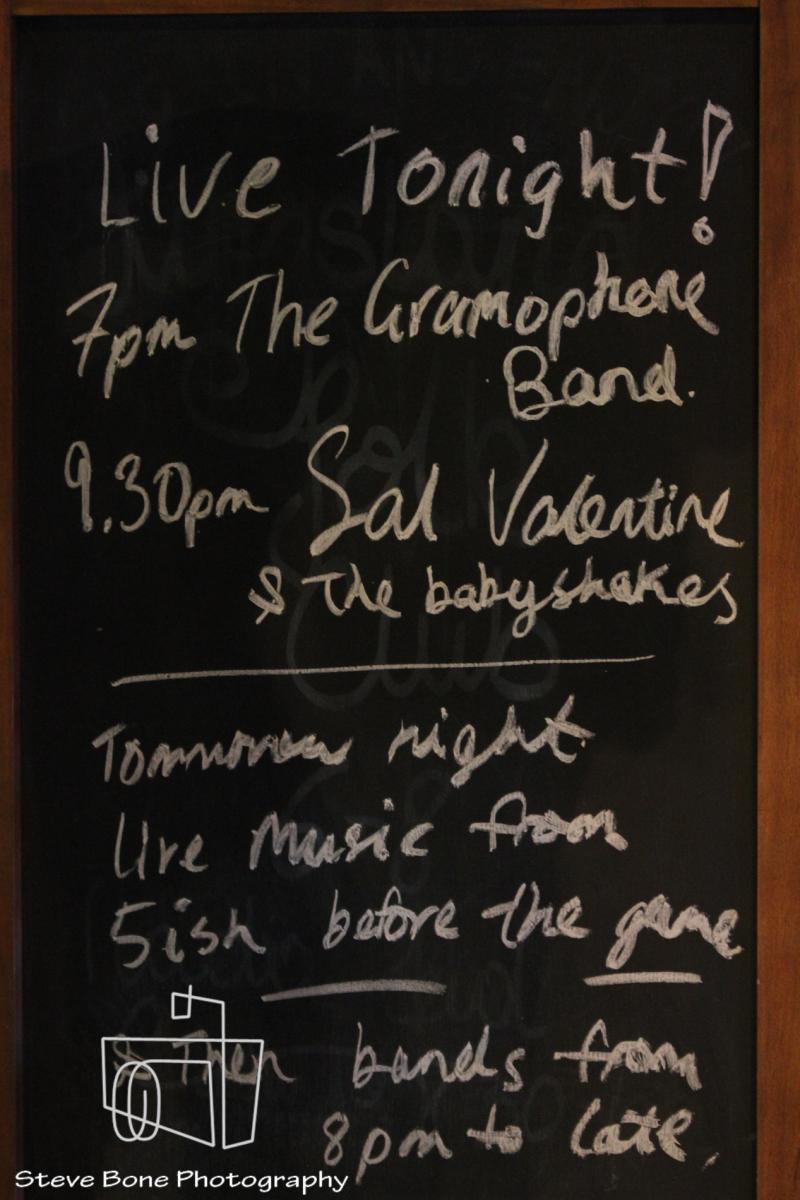 Live Tonight!
7pm The Gramophone
Band.
9.30pm Sal Valentine
& The babyshakes
Tommorow night
Live Music from
5ish before the game
& Then bands from
8pm to late.
Steve Bone Photography